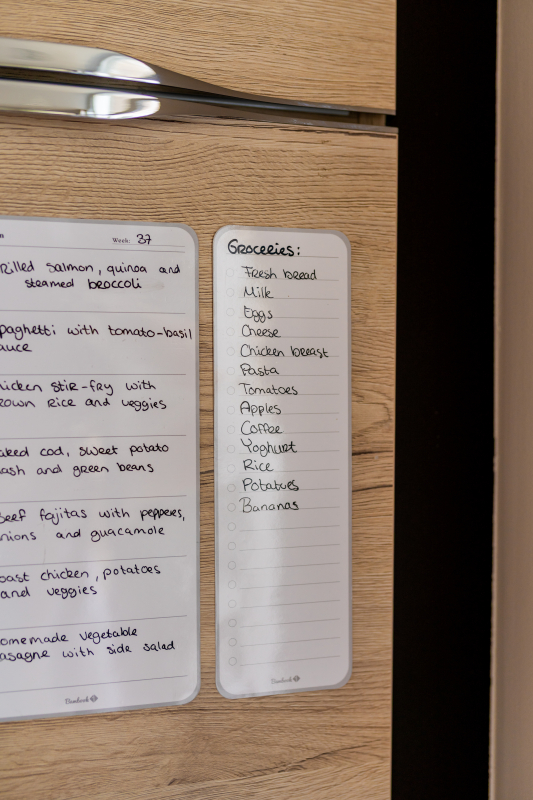 Week: 37
rilled salmon, quinoa and
steamed broccoli
paghetti with tomato-basil
auce
hicken stir-fry with
rown rice and veggies
aked cod, sweet potato
ash and green beans
Beef fajitas with peppers,
nions and guacamole
oast chicken, potatoes
and veggies
omemade vegetable
asagne with side salad
Groceries:
Fresh bread
Milk
Eggs
Cheese
Chicken breast
Pasta
Tomatoes
Apples
Coffee
Yoghurt
Rice
Potatoes
Bananas